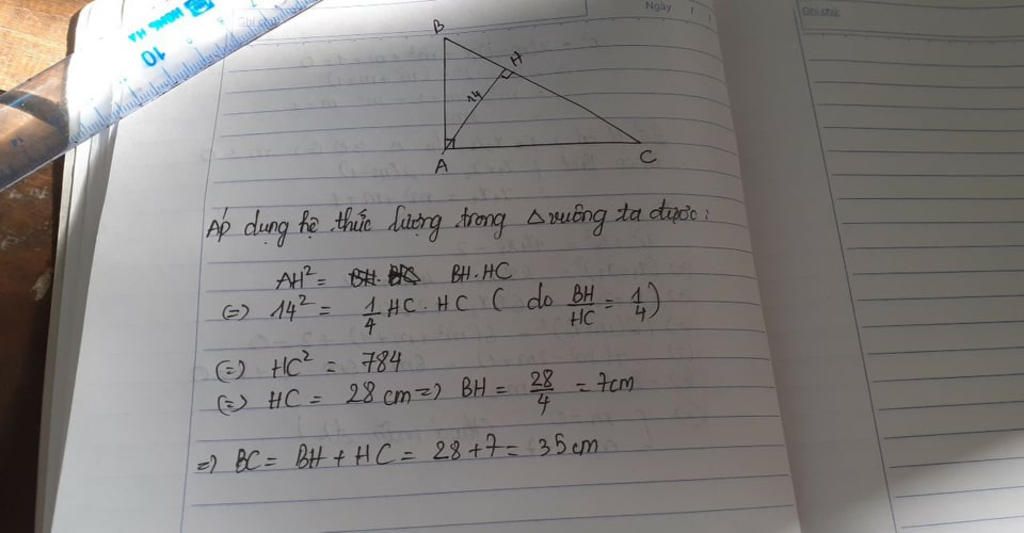 HỒNG HÀ
10
Ghi chú:
Ngày
Ghi chú:
B
H
14
A
C
Áp dụng hệ thức lượng trong △ vuông ta được:
AH² = BH.HC
⇔ 14² = 1/4 HC . HC ( do BH/HC = 1/4)
⇔ HC² = 784
⇔ HC = 28 cm ⇒ BH = 28/4 = 7cm
⇒ BC = BH + HC = 28 + 7 = 35 cm